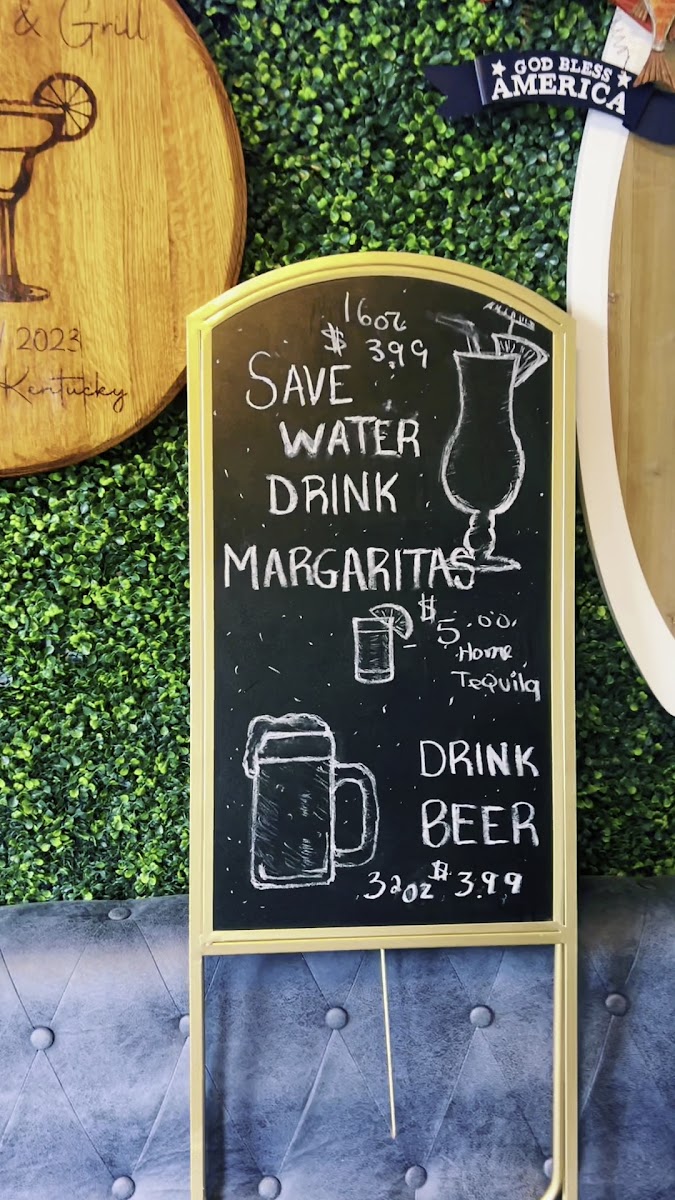 & Grill
2023
Kentucky
GOD BLESS
AMERICA
16oz
$ 3.99
SAVE
WATER
DRINK
MARGARITAS
$ 5.00
Home
TeQuila
DRINK
BEER
32oz $ 3.99